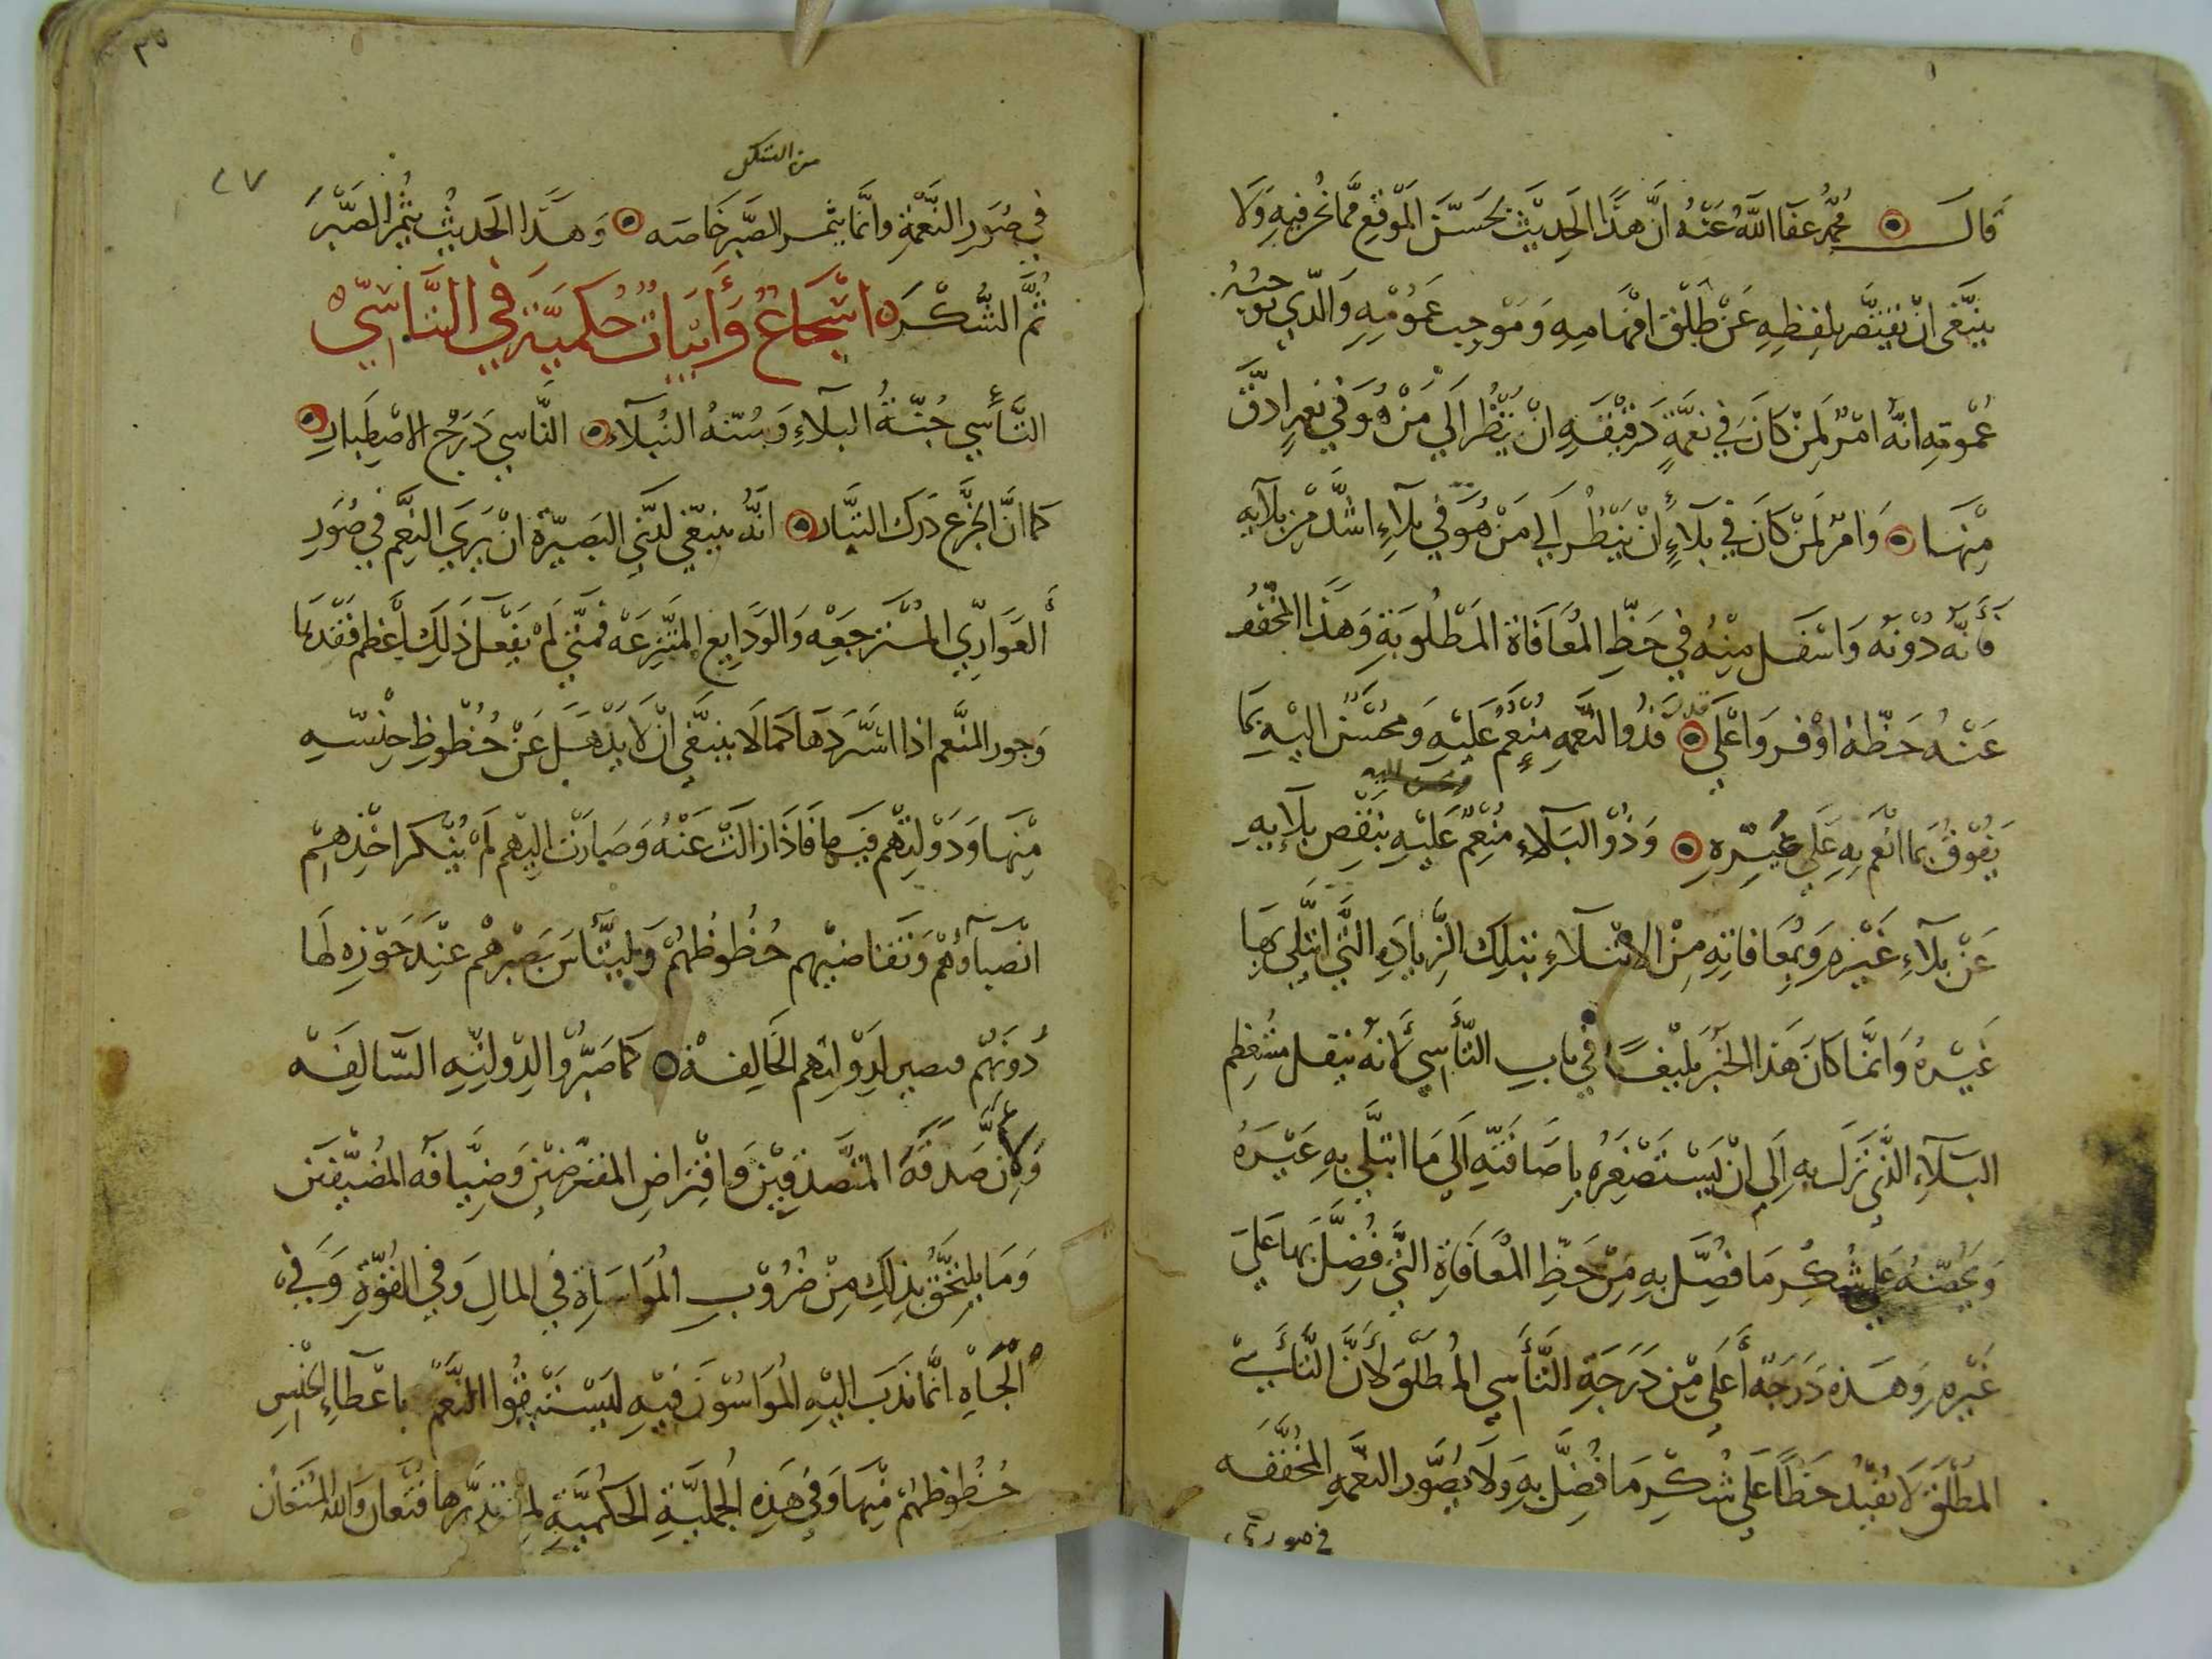 قال محمد عفا الله عنه ان هذا الحديث يحسن الموقع مما نحن فيه ولا
ينبغي ان يقتصر بلفظه عن طلق افهامه وموجب عمومه والذي توجبه
عمومه انه امر لمن كان في نعمة دقيقه ان ينظر الي من هو في نعم ادق
منها وامر لمن كان في بلاء ان ينظر الي من هو في بلاء اشد من بلايه
فانه دونه واسفل منه في حظ المعافاة المطلوبة وهذا المخفف
عنه حظه اوفر واعلي فذو النعمه منعم عليه ومحسن اليه بما
يفوق بما انعم به علي غيره وذو البلاء منعم عليه بنقص بلايه
عن بلاء غيره وبمعافاته من الابتلاء بتلك الزياده التي ابتلي بها
غيره وانما كان هذا الخبر بليغا في باب التأسي لانه ينقل مستعظم
البلاء الذي نزل به الي ان يستصغره باضافته الي ما ابتلي به غيره
ويحضه علي شكر ما فضل به من حظ المعافاة التي فضل بها علي
غيره وهذه درجة أعلي من درجة التأسي المطلق لأن التأسي
المطلق لا يفيد حظا علي شكر ما فضل به ولا يصور النعمه المخففه
في صورة
٣٥
٤٧
من الشكل
في صور النعمة وانما يثمر الصبر خاصه وهذا الحديث يثمر الصبر
ثم الشكر اسجاع وأبيات حكمية في التاسي
التأسي جنة البلاء وسنة النبلاء التاسي درج الاصطبار
كما ان الجزع درك التبار انه ينبغي لذي البصيرة ان يري النعم في صور
العواري المسترجعه والودايع المنتزعه فمتي لم يفعل ذلك أعظم فقدها
وجور المنعم اذا استردها كما لا ينبغي ان لا يذهل عن حظوظ جنسه
منها ودولتهم فيها فاذا زالت عنه وصارت اليهم لم ينكر اخذهم
انصباؤهم وتقاضيهم حظوظهم وليتأس بصبرهم عند حوزه لها
دونهم فيصبر لدولتهم الخالفه كما صبروا لدولته السالفه
وكأن صدقه المتصدقين واقتراض المقترضين وضيافه المضيفين
وما يلتحق بذلك من ضروب المواساة في المال وفي القوة وفي
الجاه انما ندب اليه المواسون فيه ليستبقوا النعم باعطاء الجنس
حظوظهم منها وفي هذه الجملية الحكمية لمن تدبرها قنعان والله المستعان